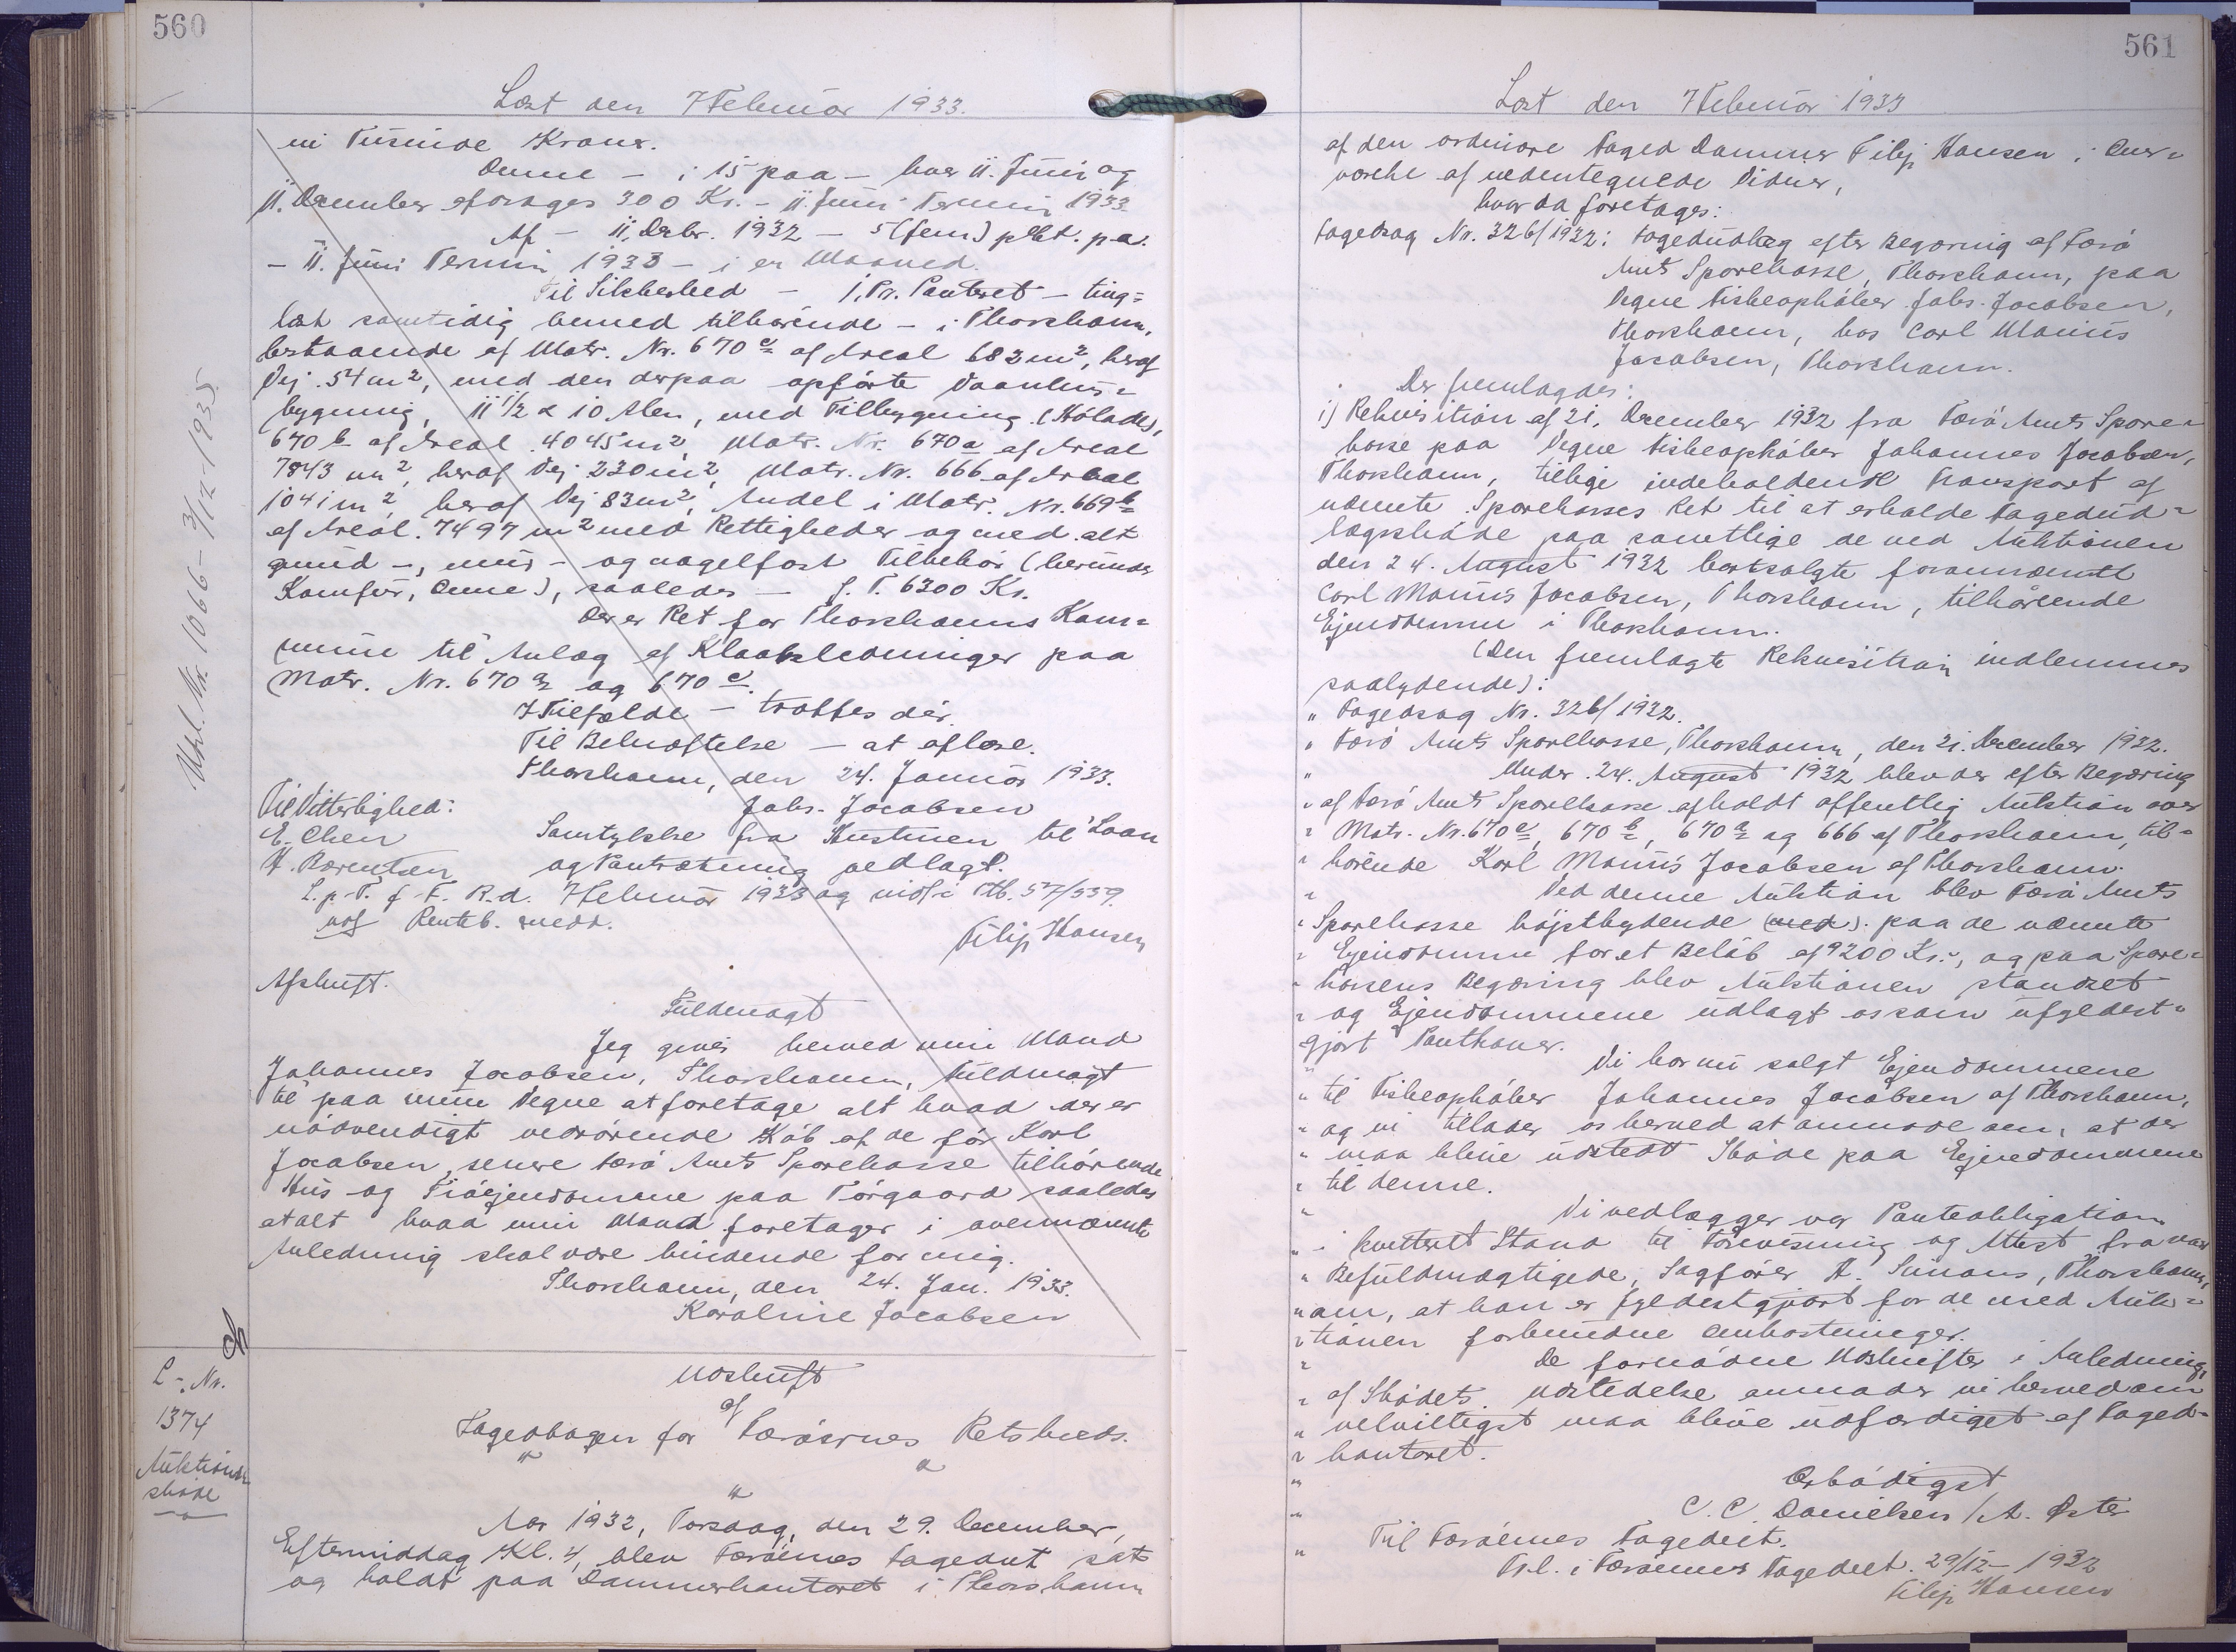 560
Læst den 7 Februar 1933.
ni Tusinde Kroner.
Denne - i 15 paa - hver 11. Juni og
11. December afdrages 300 Kr. - 11. Juni Termin 1933
Af - 11. Decbr. 1932 - 5 (fem) pCt. p.a.
- 11. Juni Termin 1933 - i en Maaned.
Til Sikkerhed - 1. Pr. Panteret - ting=
læst samtidig hermed tilhørende - i Thorshavn,
bestaaende af Matr. Nr. 670c af Areal 682 m², heraf
Vej 54 m², med den derpaa opførte Vaanhus=
bygning, 11 1/2 x 10 Alen, med Tilbygning (Hølade),
670b af Areal 4045 m², Matr. Nr. 670a af Areal
7843 m², heraf Vej 230 m², Matr. Nr. 666 af Areal
1041 m², heraf Vej 83 m², Andel i Matr. Nr. 669b
af Areal 7497 m² med Rettigheder og med alt
grund-, mur- og nagelfast Tilbehør (herunder
Komfur, Ovne), saaledes - f. T. 6300 Kr.
Der er Ret for Thorshavns Kom=
mune til Anlæg af Kloakledninger paa
Matr. Nr. 670a og 670c.
I Tilfælde - træffes dér.
Til Bekræftelse - at aflæse.
Thorshavn, den 24. Januar 1933.
Til Vitterlighed: Johs. Jacobsen
E. Olsen Samtykke fra Hustruen til Laan
H. Børentsen og Pantsætning vedlagt.
L.p.T. f. F. R. d. 7 Februar 1933 og indf. i Ptb. 57/559.
Renteb. medd.
Filip Hansen
Afskrift.
Fuldmagt
Jeg giver herved min Mand
Johannes Jacobsen, Thorshavn, Fuldmagt
til paa mine Vegne at foretage alt hvad der er
nødvendigt vedrørende Køb af de før Karl
Jacobsen, senere Færø Amts Sparekasse tilhørende
Hus og Trøejendomme paa Torgaard saaledes
at alt hvad min Mand foretager i ovennævnte
Anledning skal være bindende for mig.
Thorshavn, den 24. Jan. 1933.
Karoline Jacobsen
Udskrift
af
Fogedbogen for Færøernes Retskreds.
Aar 1932, Torsdag, den 29. December,
Eftermiddag Kl. 4, blev Færøernes Fogedret sat
og holdt paa Dommerkontoret i Thorshavn
Uhl. Nr. 1066 - 3/12-1935
L.-Nr.
1374
Auktions
skøde
561
Læst den 7 Februar 1933
af den ordinære Foged Dommer Filip Hansen i Over=
værelse af undertegnede Vidner,
hvor da foretages:
Fogedsag Nr. 326/1932: Fogedudlæg efter Begæring af Færø
Amts Sparekasse, Thorshavn, paa
Vegne Fiskeopkøber Johs. Jacobsen,
Thorshavn, hos Carl Marius
Jacobsen, Thorshavn.
Der fremlagdes:
1) Rekvisition af 21. December 1932 fra Færø Amts Spare=
kasse paa Vegne Fiskeopkøber Johannes Jacobsen,
Thorshavn, tillige indeholdende Transport af
nævnte Sparekasses Ret til at erholde Fogedud=
lægsskøde paa samtlige de ved Auktionen
den 24. August 1932 bortsolgte forannævnte
Carl Marius Jacobsen, Thorshavn, tilhørende
Ejendomme i Thorshavn.
(Den fremlagte Rekvisition indlemmes
saalydende):
" Fogedsag Nr. 326/1932.
" Færø Amts Sparekasse, Thorshavn, den 21. December 1932.
" Under 24. August 1932 blev der efter Begæring
" af Færø Amts Sparekasse afholdt offentlig Auktion over
" Matr. Nr. 670c, 670b, 670a og 666 af Thorshavn, til=
" hørende Karl Marius Jacobsen af Thorshavn.
" Ved denne Auktion blev Færø Amts
" Sparekasse højstbydende (med) paa de nævnte
" Ejendomme for et Beløb af 9200 Kr., og paa Spare=
" kassens Begæring blev Auktionen standset
" og Ejendommene udlagt os som ufyldest=
gjort Panthaver.
" Vi har nu solgt Ejendommene
" til Fiskeopkøber Johannes Jacobsen af Thorshavn,
" og vi tillader os herved at anmode om, at der
" maa blive udstedt Skøde paa Ejendommene
" til denne.
" Vi vedlægger vor Panteobligation
" i kvitteret Stand til Forevisning og Attest fra vor
" Befuldmægtigede, Sagfører A. Simons, Thorshavn,
" om, at han er fyldestgjort for de med Auk=
" tionen forbundne Omkostninger.
" De fornødne Udskrifter i Anledning
" af Skødets Udstedelse anmoder vi herved om
" velvilligst maa blive udfærdiget af Foged=
" kontoret.
" Ærbødigst
" C. C. Danielsen / A. Øster
" Til Færøernes Fogedret.
Frl. i Færøernes Fogedret. 29/12-1932
Filip Hansen